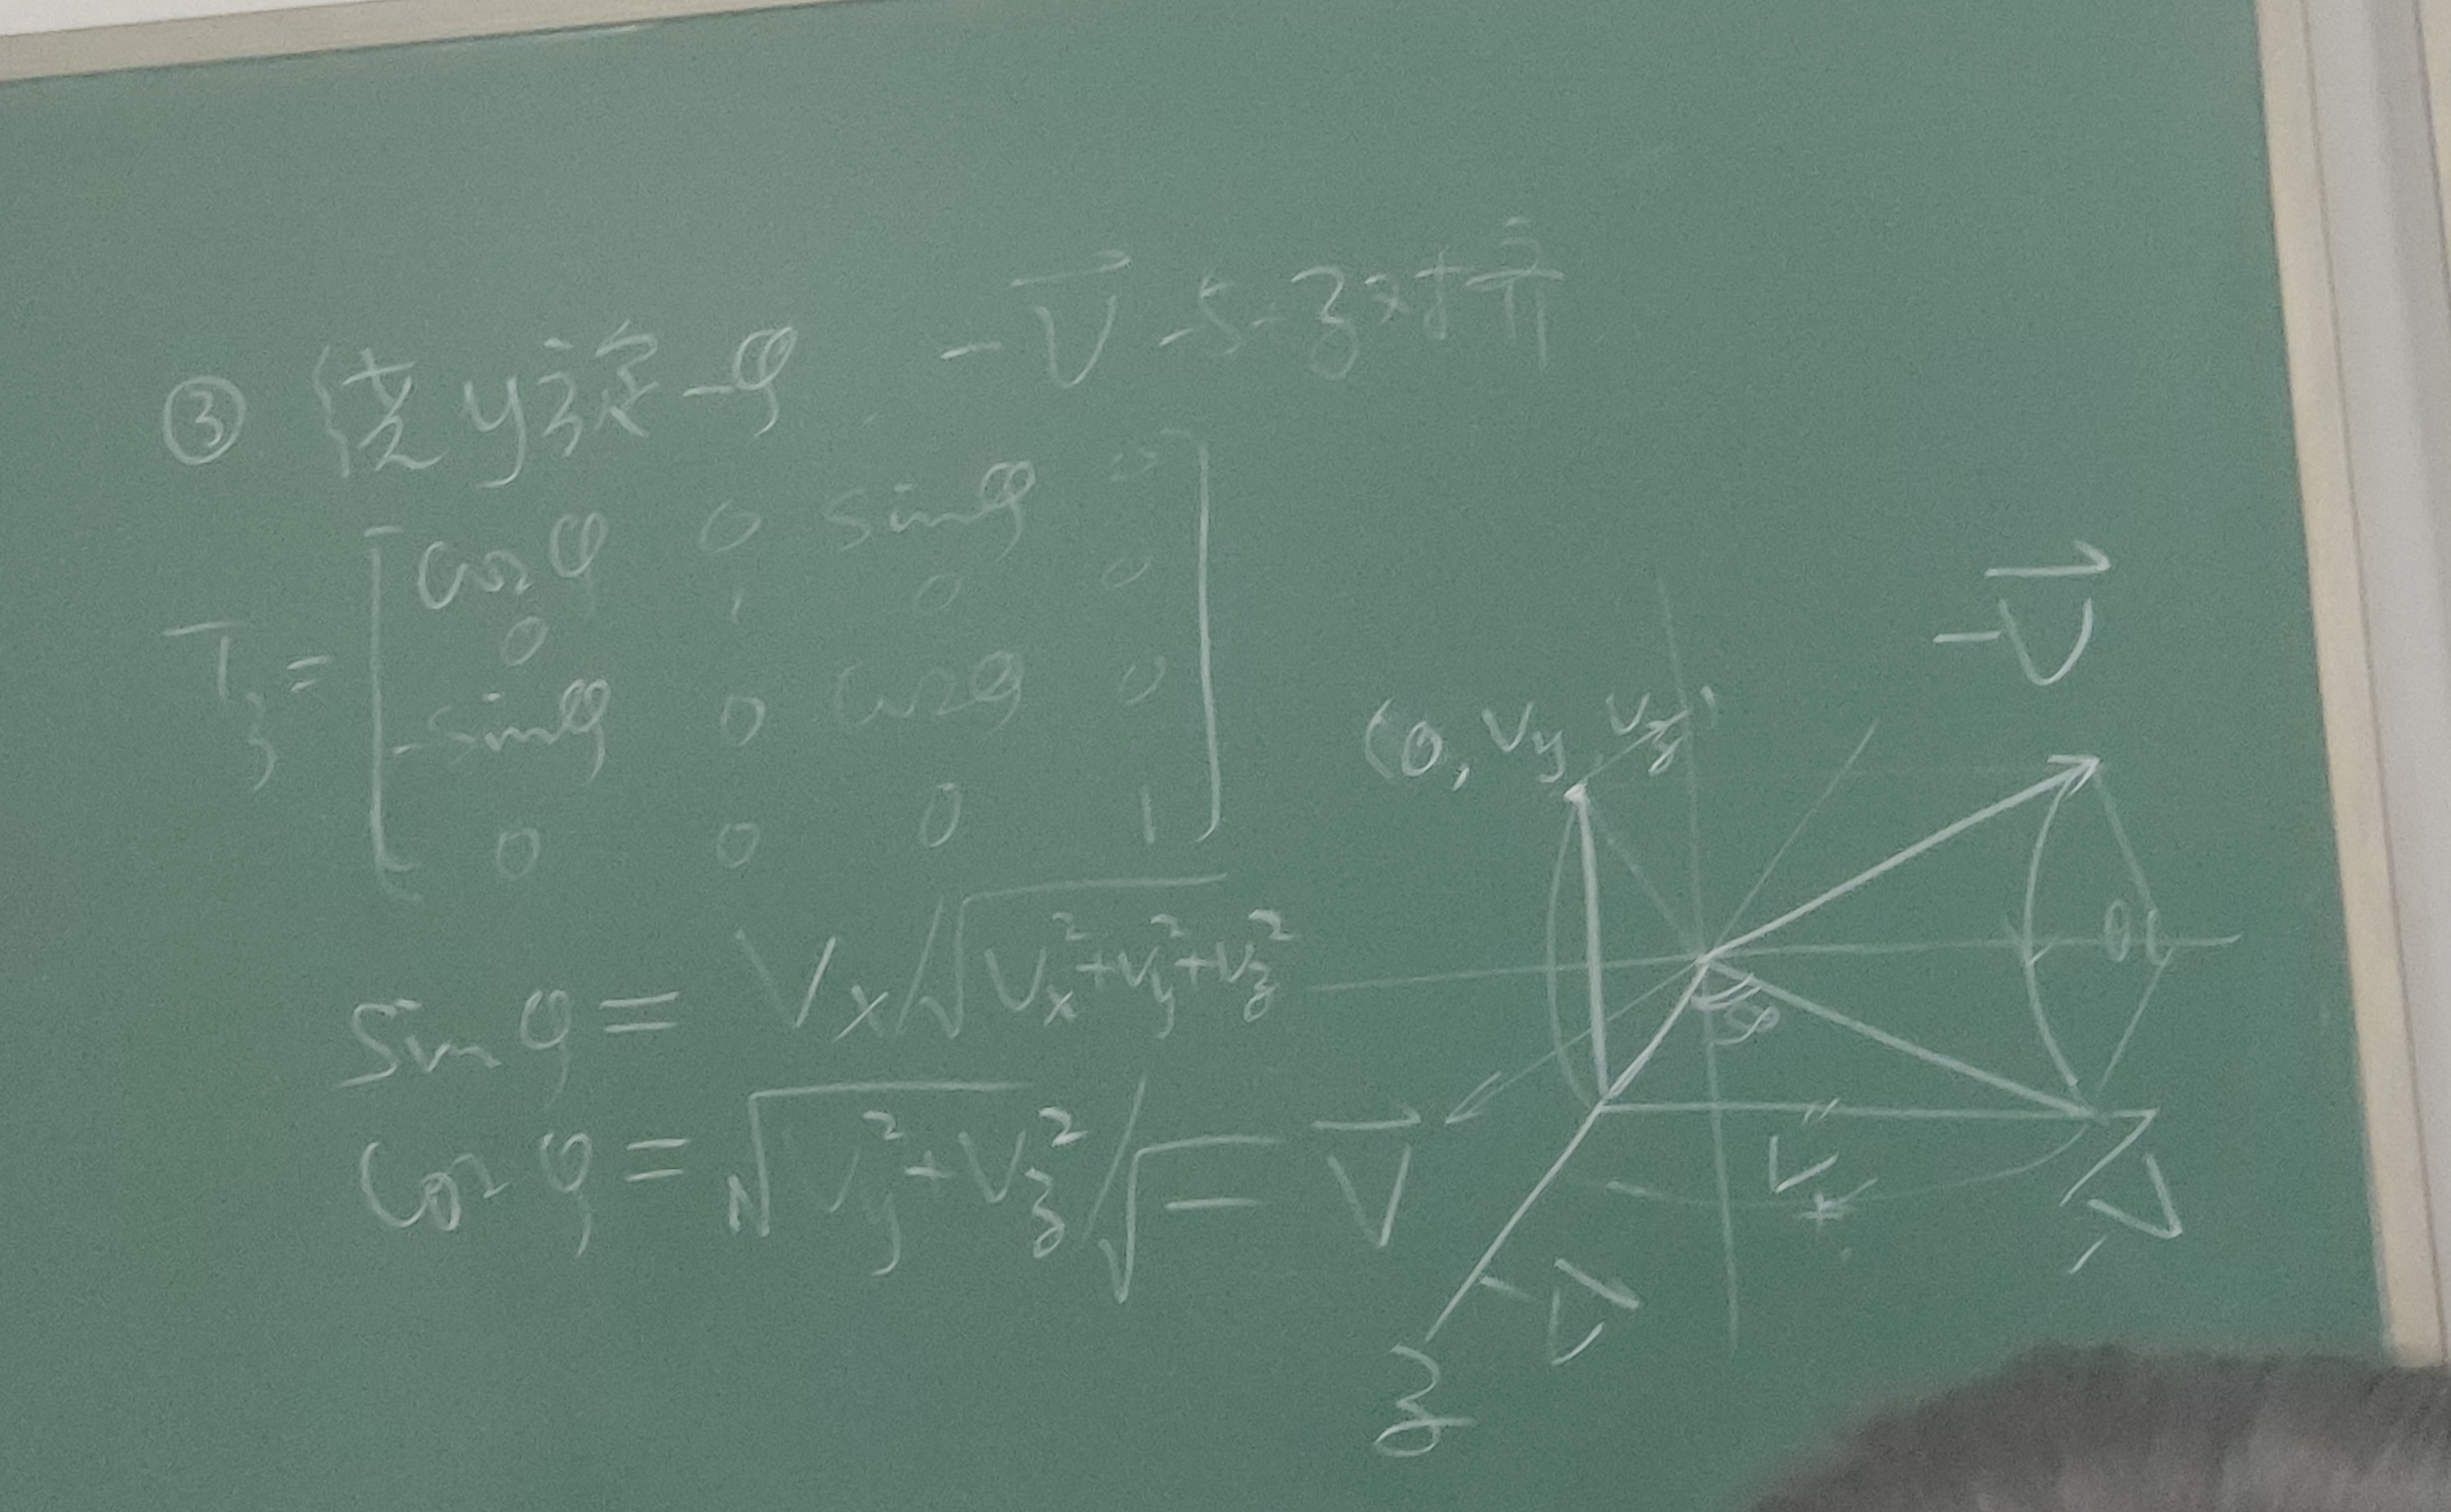 ③ 绕y旋-φ -V⃗与z对齐
T₃=
[cosφ 0 sinφ 0
0 1 0 0
-sinφ 0 cosφ 0
0 0 0 1]
sinφ = Vx/√(Vx²+Vy²+Vz²)
cosφ = √(Vy²+Vz²)/√—
-V⃗
(0, Vy, Vz)
θ
φ
V⃗
Vx
-V⃗
-V⃗
z